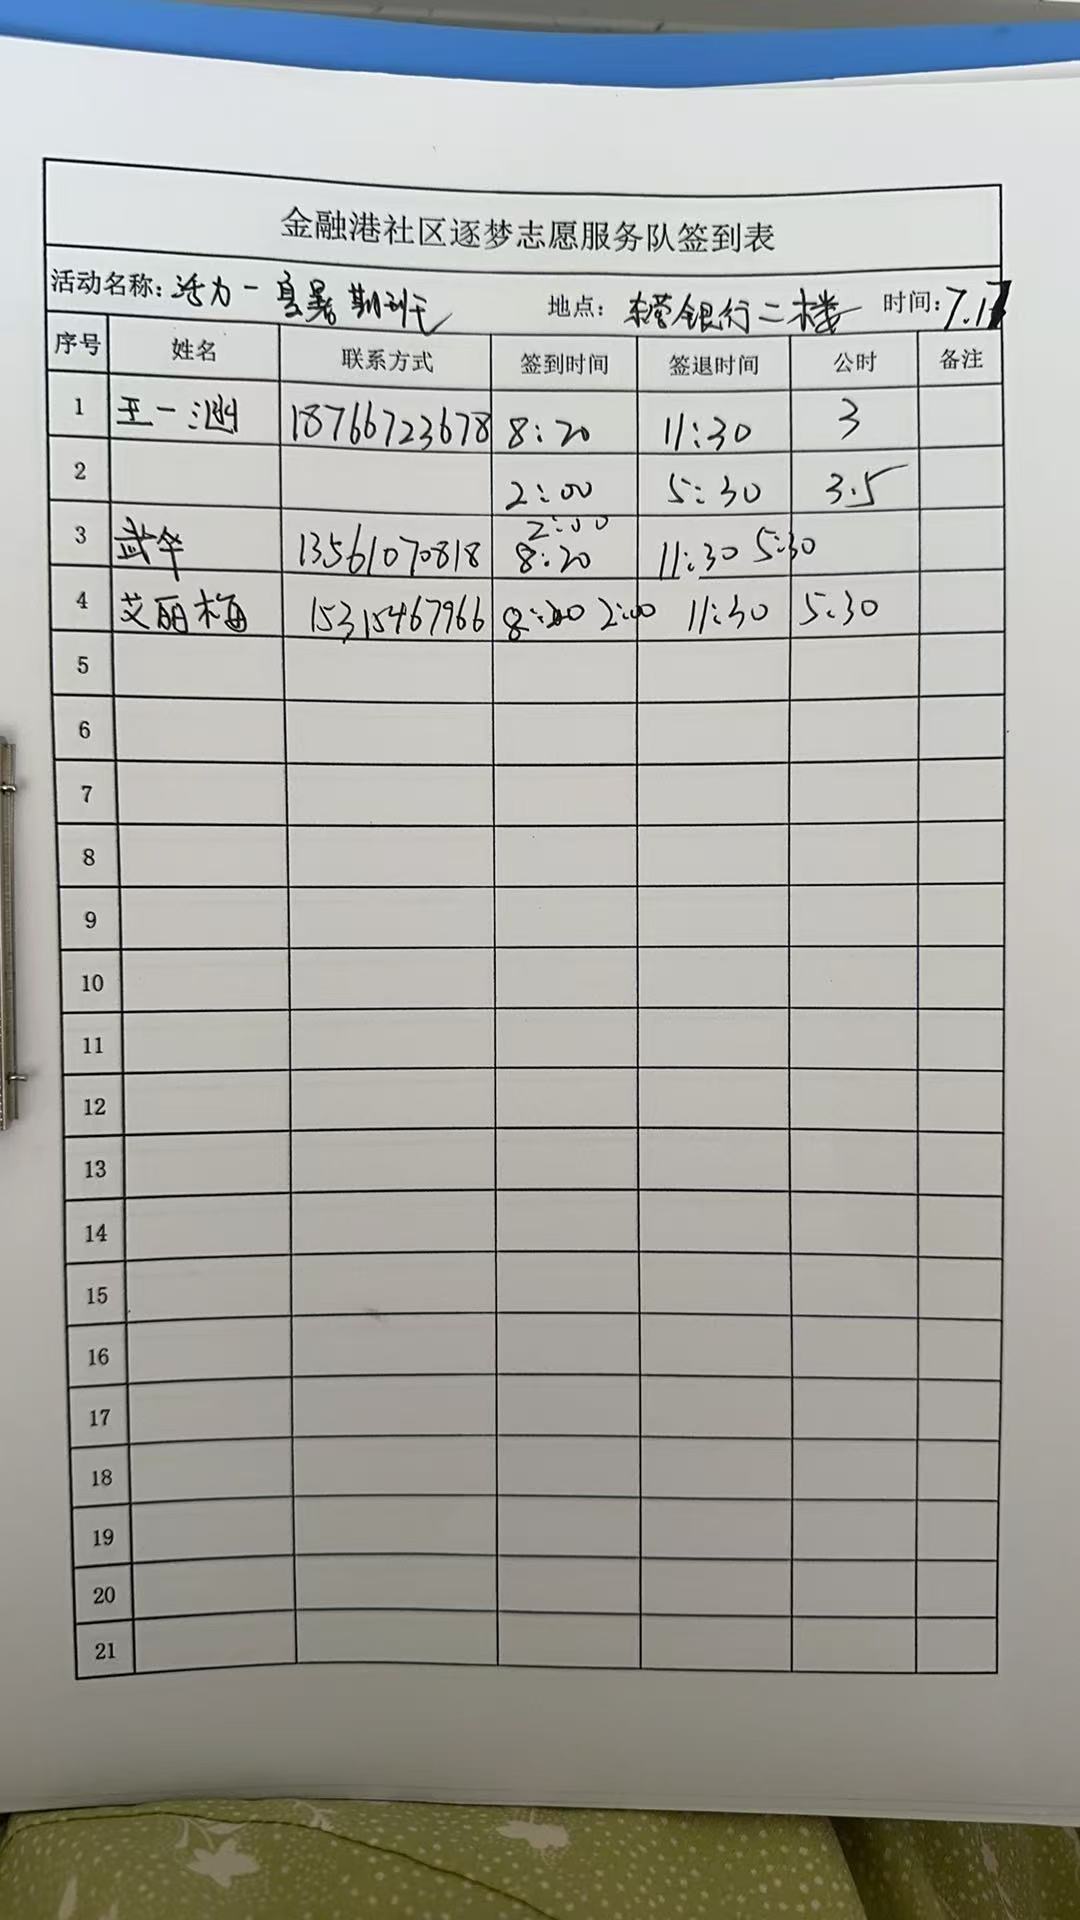 金融港社区逐梦志愿服务队签到表
活动名称: 活力一夏暑期班 地点: 东营银行二楼 时间: 7.17
序号 姓名 联系方式 签到时间 签退时间 公时 备注
1 王一 18766723678 8:20 11:30 3
2 2:00 5:30 3.5
2:00
3 武华 13561070818 8:20 11:30 5:30
4 艾丽梅 15315467966 8:20 2:00 11:30 5:30
5
6
7
8
9
10
11
12
13
14
15
16
17
18
19
20
21